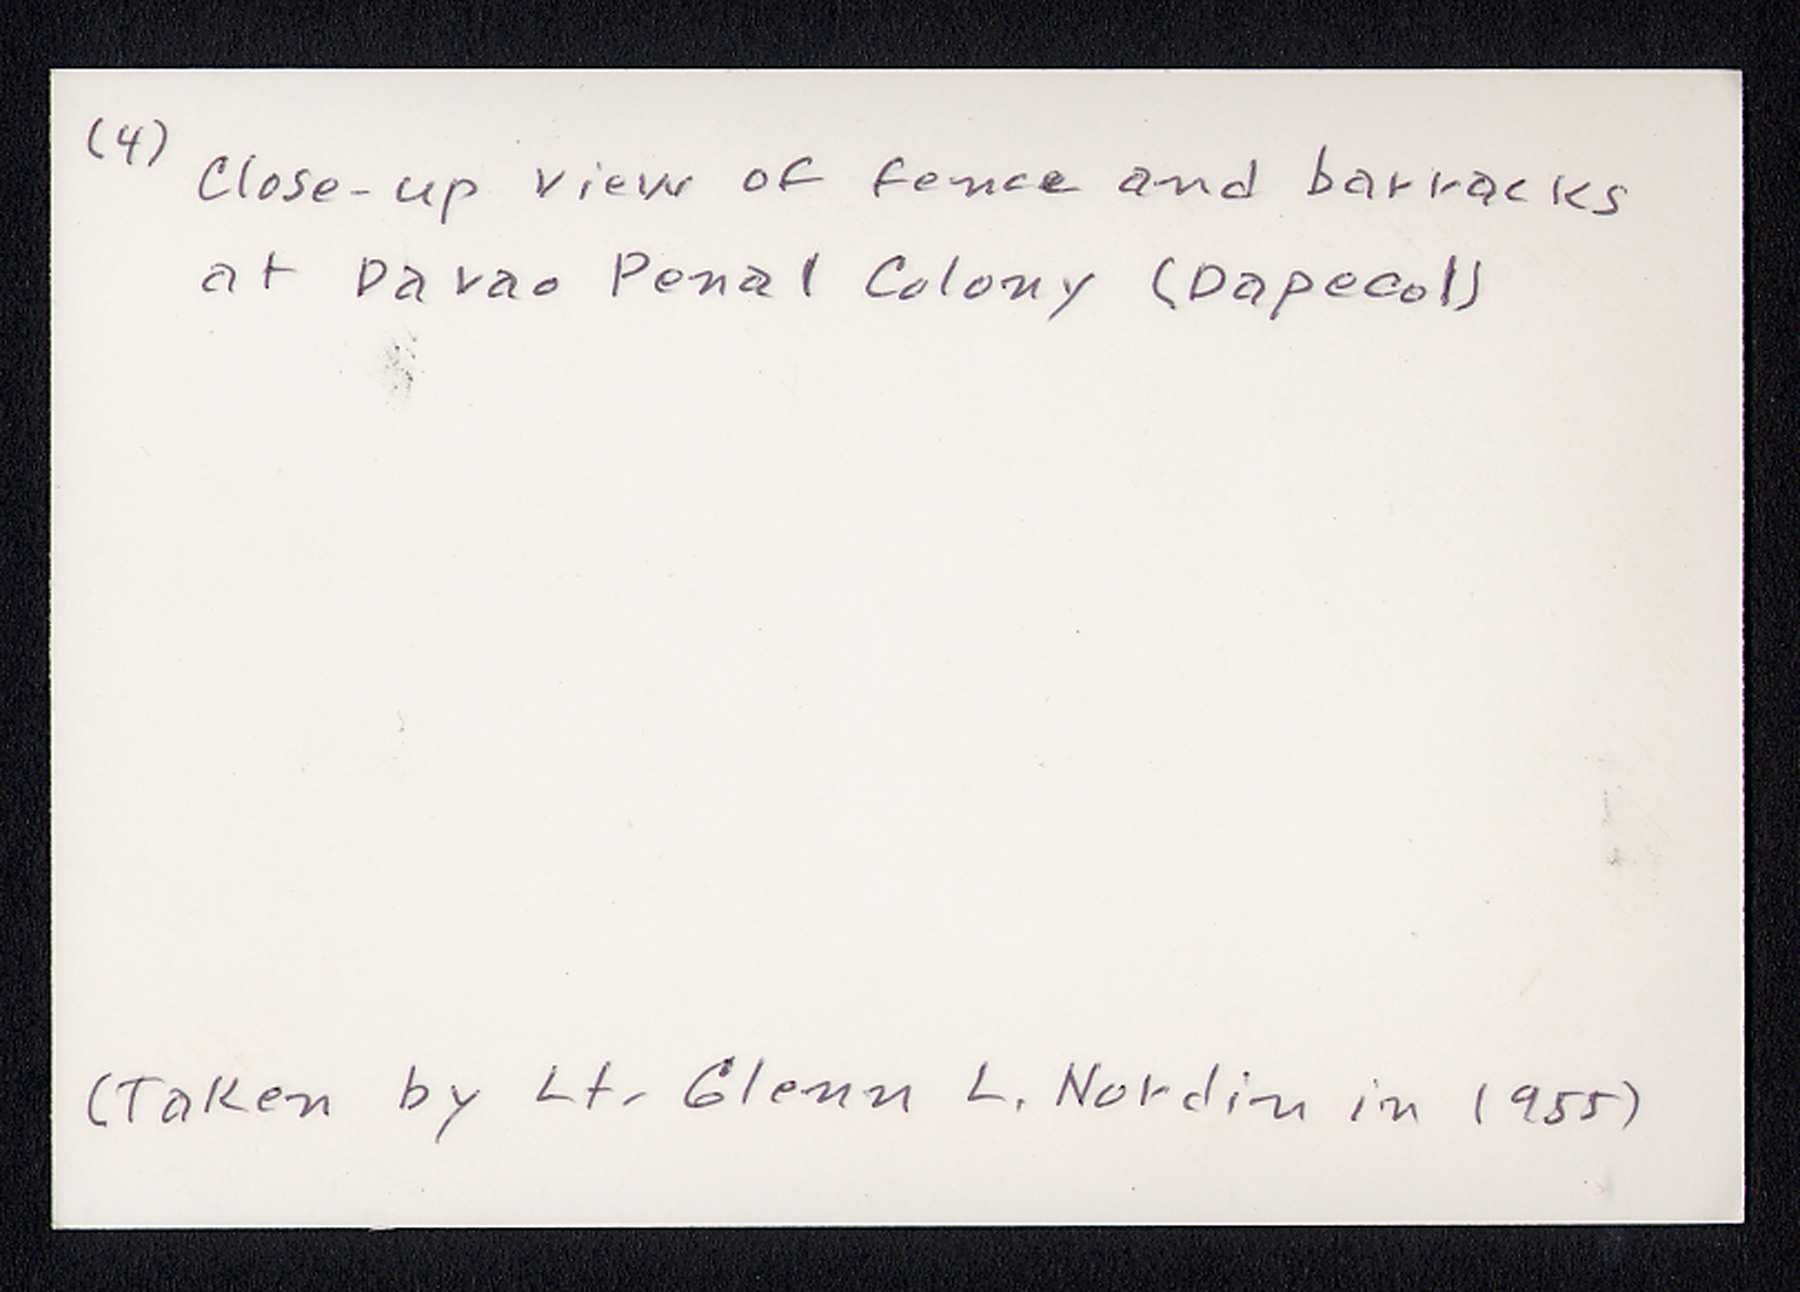 (4)
Close-up view of fence and barracks
at Davao Penal Colony (Dapecol)
(Taken by Lt. Glenn L. Nordin in 1955)